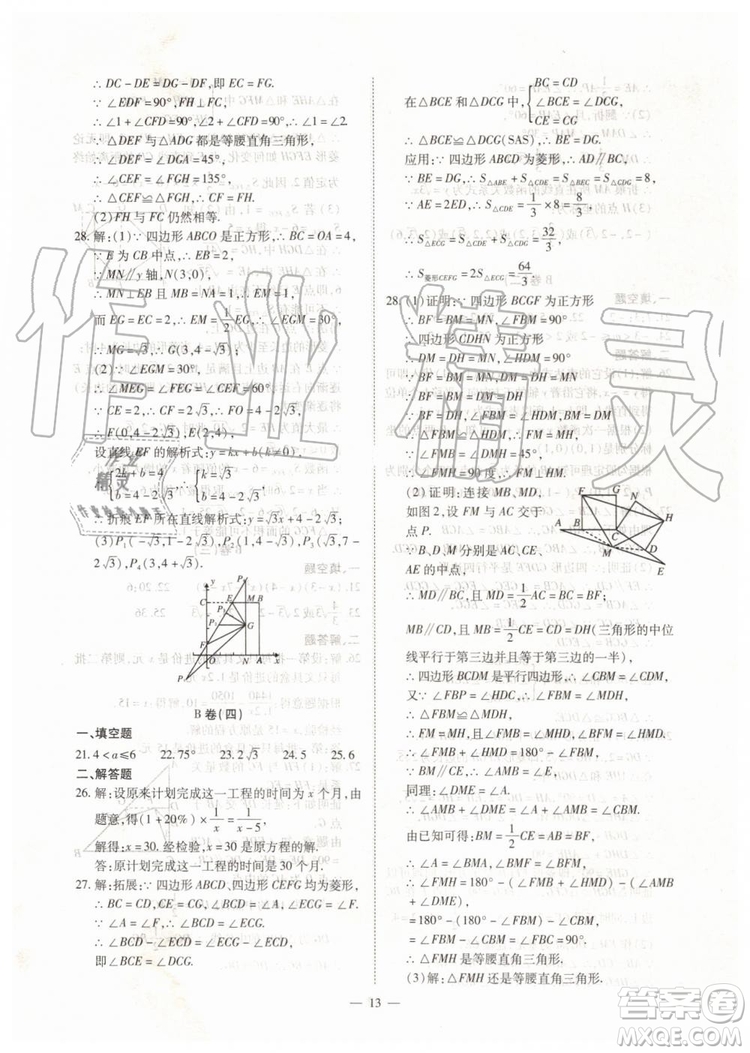 ∴ DC-DE=DG-DF,即 EC=FG.
∵ ∠EDF=90°,FH⊥FC,
∴ ∠1+∠CFD=90°,∠2+∠CFD=90°,∴ ∠1=∠2.
∵ △DEF 与△ADG 都是等腰直角三角形,
∴ ∠DEF=∠DGA=45°,
∴ ∠CEF=∠FGH=135°,
∴ △CEF≌△FGH,∴ CF=FH.
(2)FH 与 FC 仍然相等.
28.解:(1)∵ 四边形 ABCO 是正方形,∴ BC=OA=4,
∵ E 为 CB 中点,∴ EB=2,
∵ MN∥y 轴,∴ MN⊥EB,∴ EM=1,
而 EG=EC=2,∴ EM=1/2 EG,∴ ∠EGM=30°,
∴ MG=√3,∴ G(3,4-√3).
(2)∵ ∠EGM=30°,
∴ ∠MEG=∠FEG=∠CEF=60°.
∵ CE=2,∴ CF=2√3,∴ FO=4-2√3,
∴ F(0,4-2√3),E(2,4),
设直线 EF 的解析式:y=kx+b(k≠0).
∴ {2k+b=4, b=4-2√3, ∴ {k=√3, b=4-2√3,
∴ 折痕 EF 所在直线解析式:y=√3x+4-2√3.
(3)P₁(-√3,1-2√3),P₂(√3,7-2√3),P₃(√3,
y
C E M B
P₂
P₃
F G
O N A x
P
B 卷(四)
一、填空题
21.4<a≤6 22.75° 23.2√3 24.5 25.6
二、解答题
26.解:设原来计划完成这一工程的时间为 x 个月,由
题意,得(1+20%)×1/x=1/(x-5),
解得:x=30. 经检验,x=30 是原方程的解.
答:原计划完成这一工程的时间是 30 个月.
27.解:拓展:∵ 四边形 ABCD,四边形 CEFG 均为菱形,
∴ BC=CD,CE=CG,∠BCD=∠A,∠ECG=∠F.
∵ ∠A=∠F,∴ ∠BCD=∠ECG.
∴ ∠BCD-∠ECD=∠ECG-∠ECD,
即∠BCE=∠DCG.
在△BCE 和△DCG 中,{BC=CD ∠BCE=∠DCG CE=CG
∴ △BCE≌△DCG(SAS),∴ BE=DG.
应用:∵ 四边形 ABCD 为菱形,∴ AD∥BC,
∵ BE=DG,∴ S△ABE+S△CDE=S△BEC=S△CDG=8,
∵ AE=2ED,∴ S△CDE=1/3×8=8/3,
∴ S△ECG=S△CDE+S△CDG=32/3,
∴ S菱形CEFG=2S△ECG=64/3.
28.(1)证明:∵ 四边形 BCGF 为正方形
∴ BF=BM=MN,∠FBM=90°
∵ 四边形 CDHN 为正方形
∴ DM=DH=MN,∠HDM=90°
∵ BF=BM=DM=DH
∴ △FBM≌△HDM
∴ FM=MH
∵ ∠FMB=∠DMH=45°,
∴ ∠FMH=90度,∴ FM⊥HM.
(2)证明:连接 MB、MD,
如图 2,设 FM 与 AC 交于
点 P.
∵ B、D、M 分别是 AC、CE、
AE 的中点,
∴ MD∥BC,且 MD=1/2 AC=BC=BF;
MB∥CD,且 MB=1/2 CE=CD=DH(三角形的中位
线平行于第三边并且等于第三边的一半),
∴ 四边形 BCDM 是平行四边形,
∴ ∠CBM=∠CDM,
又∵ ∠FBP=∠HDC,∴ ∠FBM=∠MDH,
∴ △FBM≌△MDH,
∴ FM=MH,且∠FMB=∠MHD,∠BFM=∠HMD.
∴ ∠FMB+∠HMD=180°-∠FBM,
∵ BM∥CE,∴ ∠AMB=∠E,
同理:∠DME=∠A.
∴ ∠AMB+∠DME=∠A+∠AMB=∠CBM.
由已知可得:BM=1/2 CE=AB=BF,
∴ ∠A=∠BMA,∠BMF=∠BFM,
∴ ∠FMH=180°-(∠FMB+∠HMD)-(∠AMB
+∠DME),
=180°-(180°-∠FBM)-∠CBM
=∠FBM-∠CBM=∠FBC=90°.
∴ △FMH 是等腰直角三角形.
(3)解:△FMH 还是等腰直角三角形.
13
作业精灵
答案圈